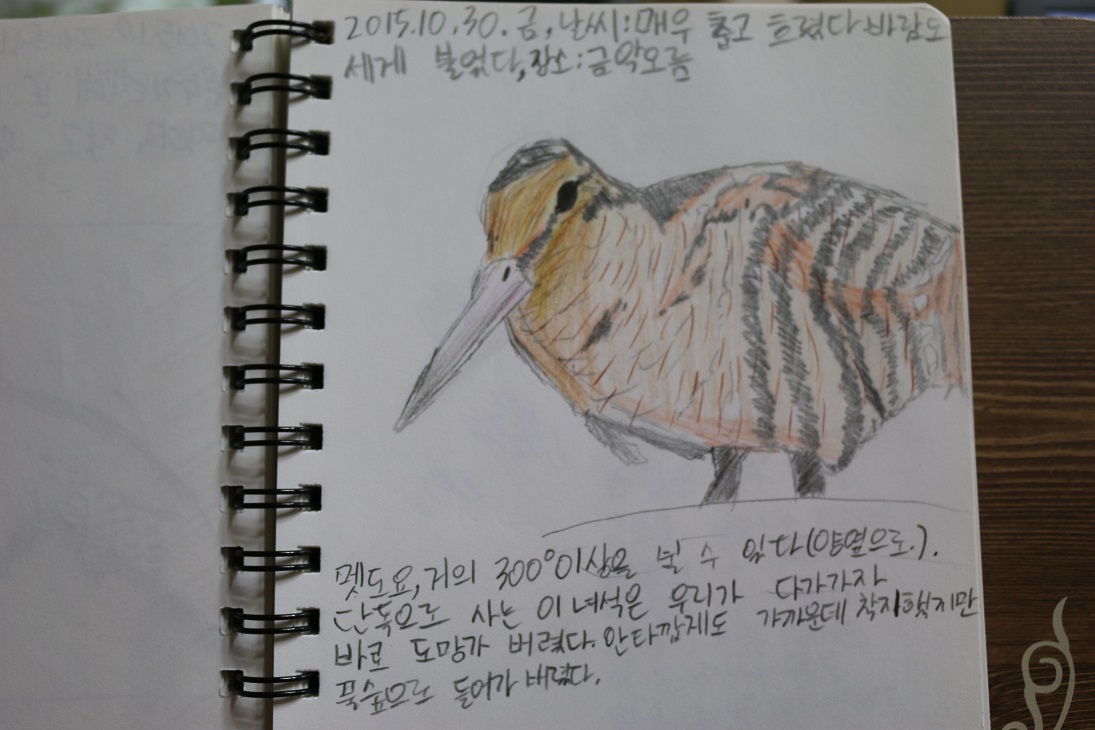 2015.10.30.금, 날씨:매우 춥고 흐렸다 바람도
세게 불었다, 장소:금악오름
멧도요, 거의 300°이상을 볼 수 있다(양옆으로.).
단독으로 사는 이 녀석은 우리가 다가가자
바로 도망가 버렸다. 안타깝게도 가까운데 착지했지만
풀숲으로 들어가 버렸다.